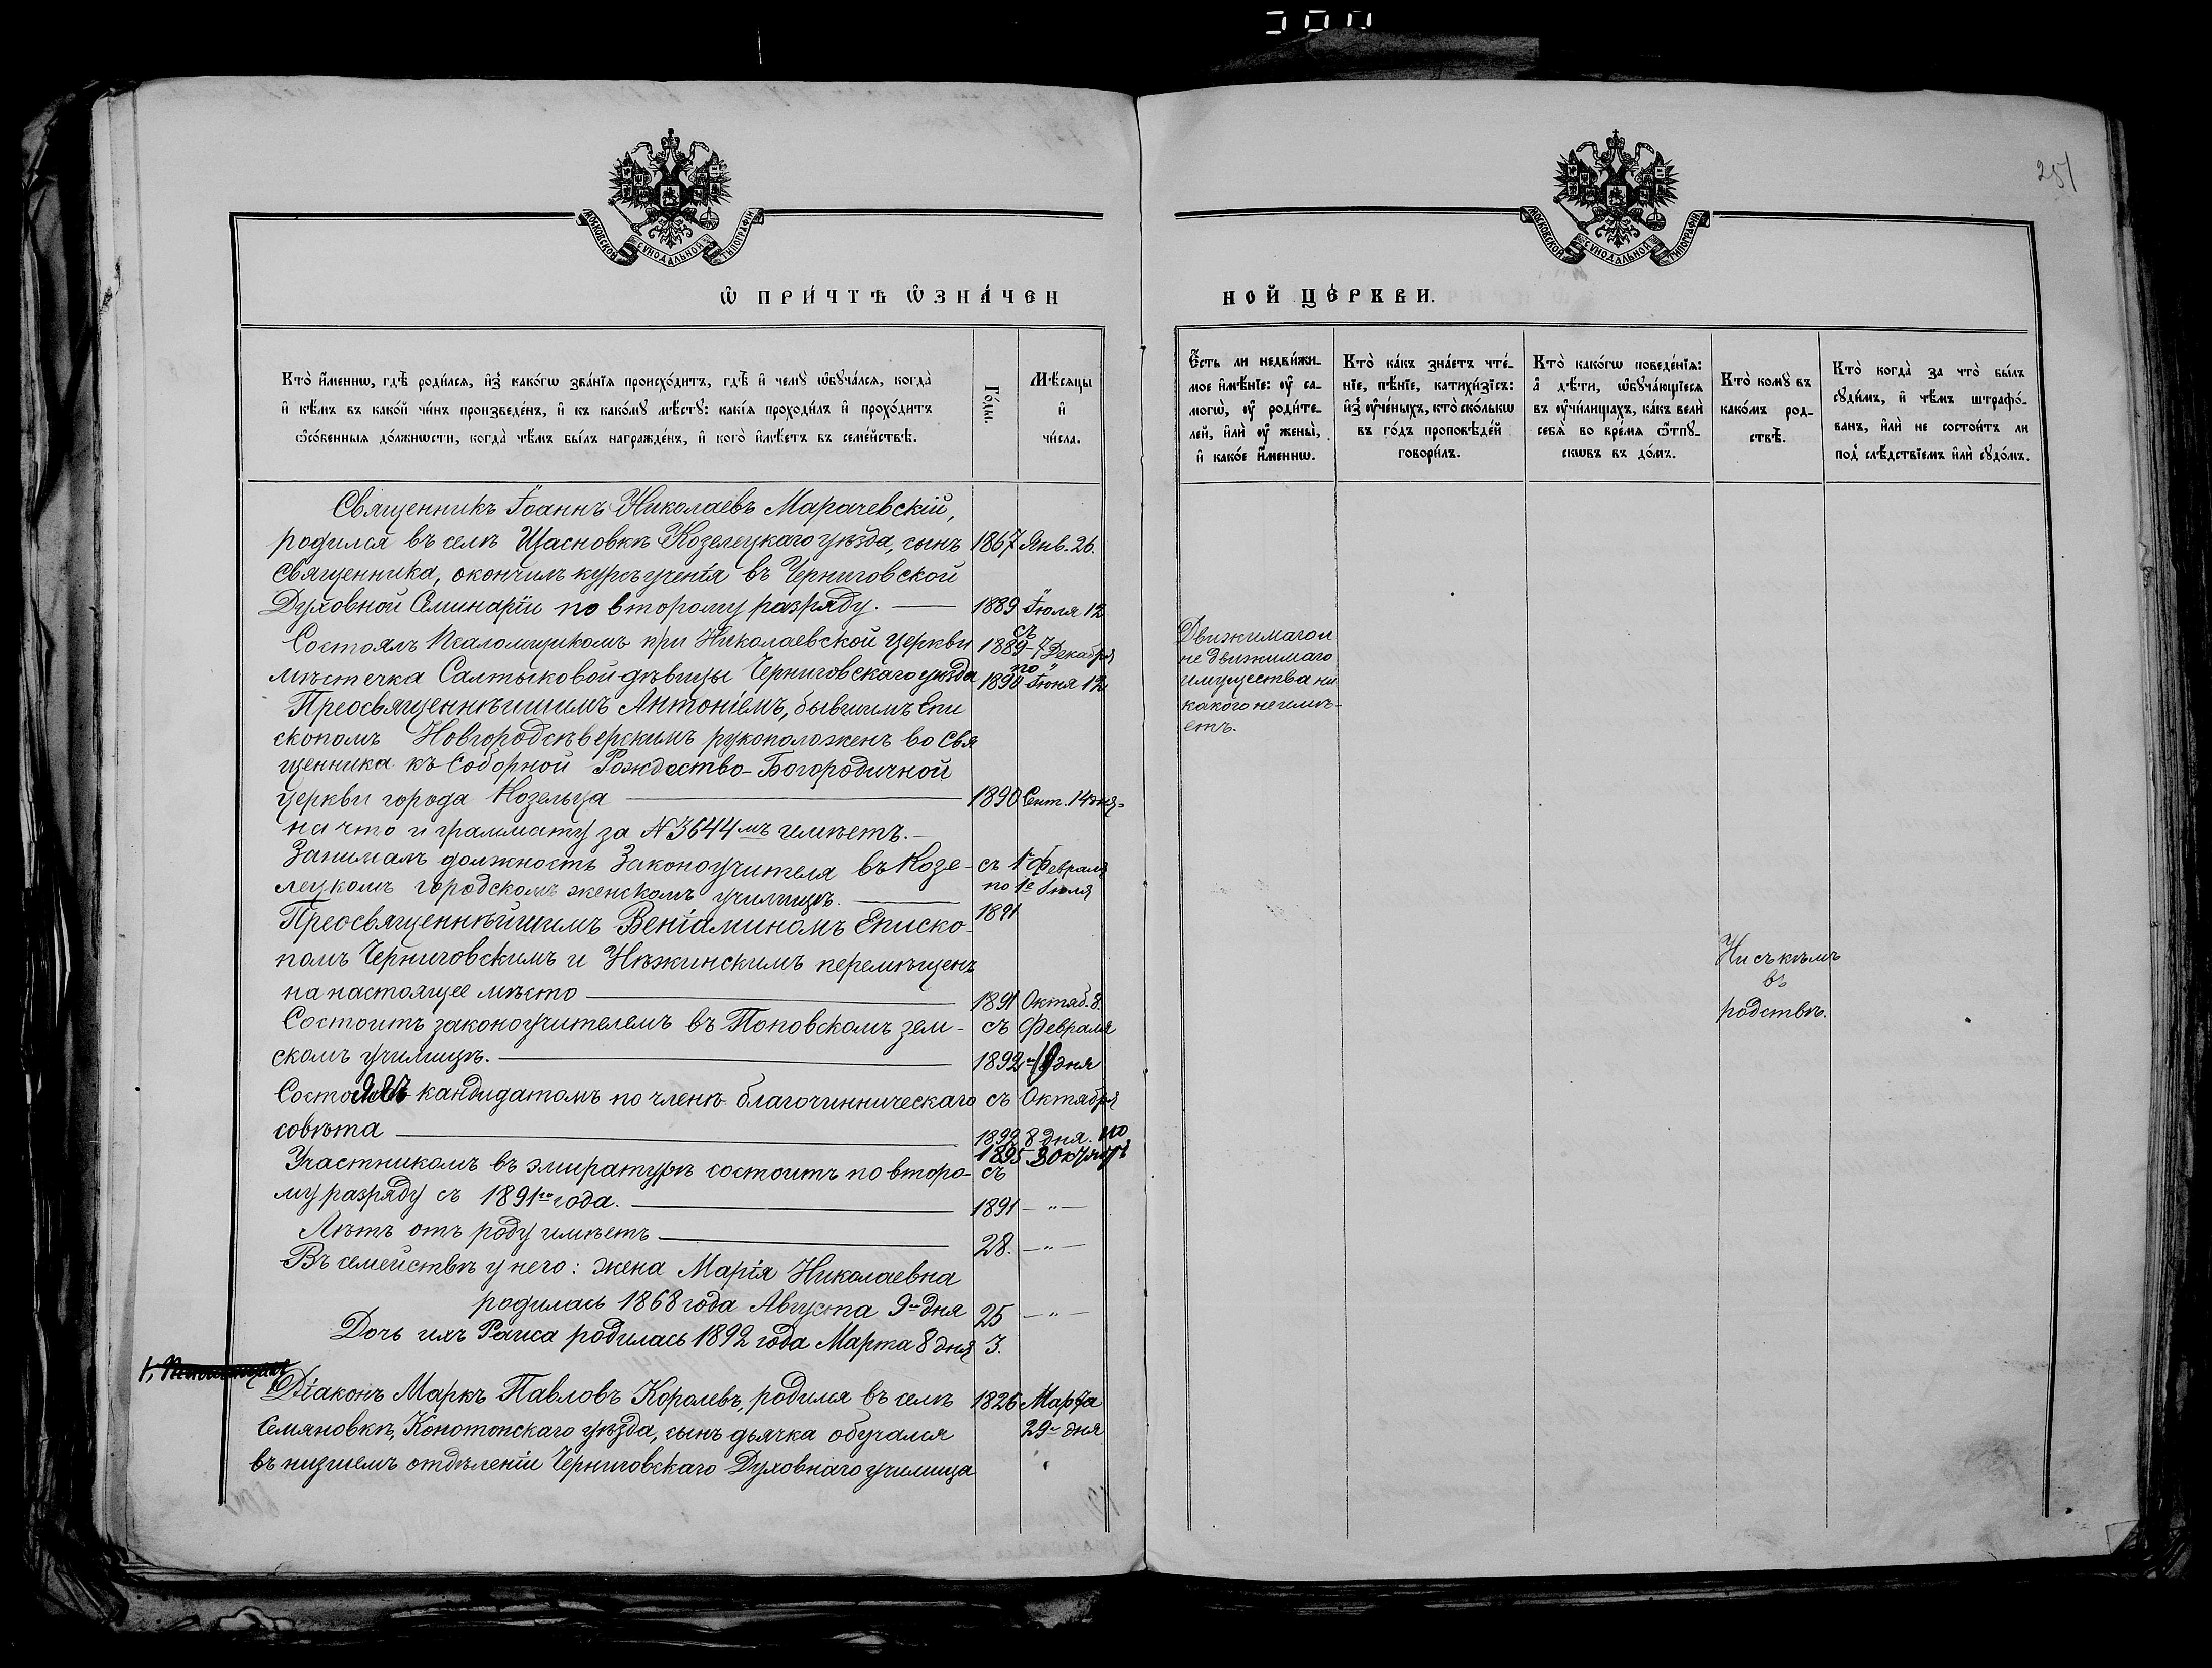 251
МОСКОВСКОЙ СѴНОДАЛЬНОЙ ТИПОГРАФІИ
МОСКОВСКОЙ СѴНОДАЛЬНОЙ ТИПОГРАФІИ
Ѡ ПРИ́ЧТѢ ѠЗНА́ЧЕН
НОЙ ЦЕ́РКВИ.
Кто̀ и҆́меннѡ, гдѣ̀ роди́лсѧ, и҆з̾ како́гѡ зва́нїѧ происхо́дитъ, гдѣ̀ и҆ чемꙋ̀ ѡ҆бꙋча́лсѧ, когда̀
и҆ кѣ́мъ въ како́й чи́нъ произведе́нъ, и҆ къ како́мꙋ мѣ́стꙋ: какі̑ѧ проходи́лъ и҆ прохо́дитъ
ѡ҆со́бенныѧ до́лжнѡсти, когда̀ чѣ́мъ бы́лъ награжде́нъ, и҆ кого̀ и҆мѣ́етъ въ семе́йствѣ.
Го́ды.
Мѣ́сѧцы
и҆
чи́сла.
Є҆́сть ли недви́жи-
мое и҆мѣ́нїе: ᲂу҆ са-
могѡ̀, ᲂу҆ роди́те-
лей, и҆лѝ ᲂу҆ жены̀,
и҆ како́е и҆́меннѡ.
Кто̀ ка́къ зна́етъ чте́-
нїе, пѣ́нїе, катихи́зїсъ:
и҆з̾ ᲂу҆че́ныхъ, кто̀ ско́лькѡ
въ го́дъ проповѣ́дей
говори́лъ.
Кто̀ како́гѡ поведе́нїѧ:
а҆ дѣ́ти, ѡ҆бꙋча́ющїесѧ
въ ᲂу҆чи́лищахъ, ка́къ велѝ
себѧ̀ во вре́мѧ ѿпꙋ-
скѡвъ въ до́мъ.
Кто̀ комꙋ̀ въ
како́мъ род-
ствѣ̀.
Кто̀ когда̀ за что̀ бы́лъ
сꙋди́мъ, и҆ чѣ́мъ штрафо́-
ванъ, и҆лѝ не состои́тъ ли
под̾ слѣ́дствїемъ и҆лѝ сꙋдо́мъ.
Священникъ Іоаннъ Николаевъ Марачевскій,
родился въ селѣ Щасновкѣ Козелецкаго уѣзда, сынъ 1867 Янв. 26.
священника, окончилъ курсъ ученія въ Черниговской
Духовной Семинаріи по второму разряду. — 1889 Іюля 12
Состоялъ псаломщикомъ при Николаевской церкви съ 1889 - 7 Декабря
мѣстечка Салтыковой-дѣвицы Черниговскаго уѣзда по 1890 Іюня 12
Преосвященнѣишимъ Антоніемъ, бывшимъ Епи
скопомъ Новгородсѣверскимъ рукоположенъ во Свя
щенника къ Соборной Рождество-Богородичной
церкви города Козельца — 1890 Сент. 14 дня
на что и граммату за № 3644мъ имѣетъ. —
Занималъ должность Законоучителя въ Козе- съ 1го Февраля
лецкомъ городскомъ женскомъ училищѣ. — по 1е Іюля
1891
Преосвященнѣйшимъ Веніаминомъ Еписко-
помъ Черниговскимъ и Нѣжинскимъ перемѣщенъ
на настоящее мѣсто — 1891 Октяб. 8.
Состоитъ законоучителемъ въ Поповскомъ зем- съ Февраля
скомъ училищѣ. — 1892 19 дня
Состоялъ кандидатомъ по членѣ благочинническаго съ Октября
совѣта — 1892 8 дня. по
1895
Участникомъ въ эмиратурѣ состоитъ по второ- съ
му разряду съ 1891го года. — 1891 — " —
Лѣтъ отъ роду имѣетъ — 28. — " —
Въ семействѣ у него: жена Марія Николаевна
родилась 1868 года Августа 9го дня 25 — " —
Дочь ихъ Раиса родилась 1892 года Марта 8 дня 3.
Діаконъ Маркъ Павловъ Королевъ, родился въ селѣ 1826 Марта
Семяновкѣ, Конотопскаго уѣзда, сынъ дьячка обучался 29го дня
въ низшемъ отдѣленіи Черниговскаго Духовнаго училища
Движимаго и
не движимаго
имущества ни
какого не имѣ-
етъ.
Ни съ кѣмъ
въ
родствѣ.